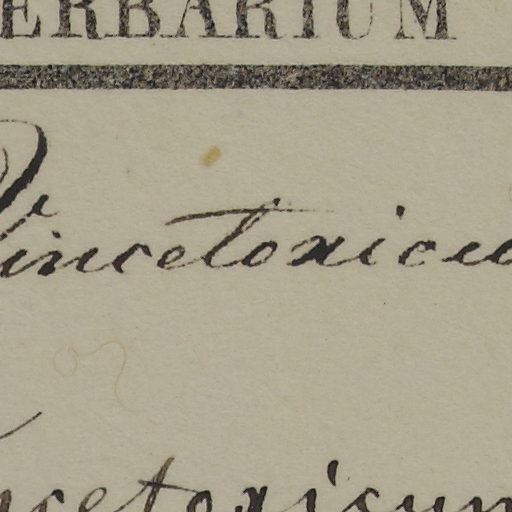 ERBARIUM
Vincetoxicu
ncetoxicum